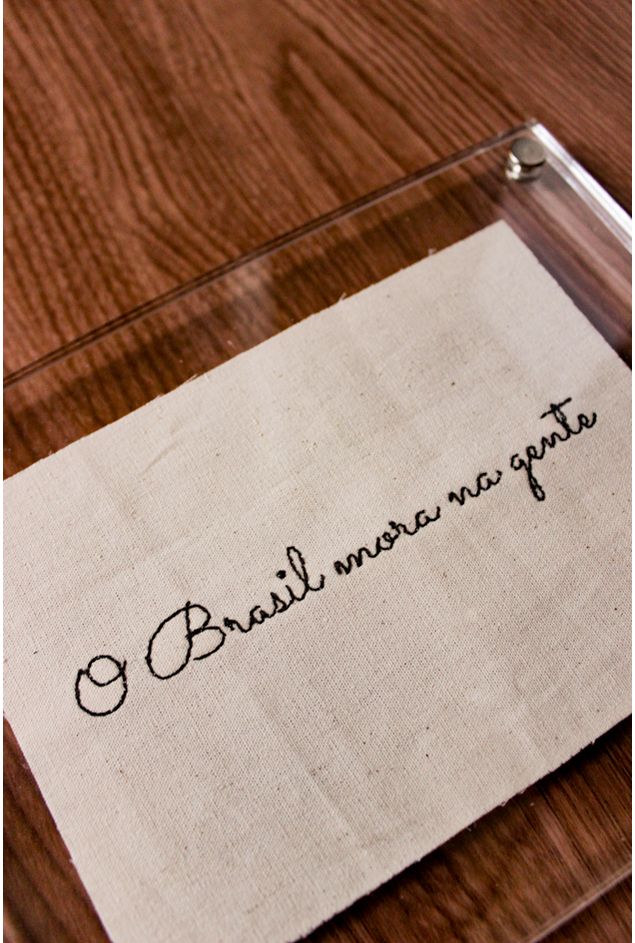 O Brasil mora na gente